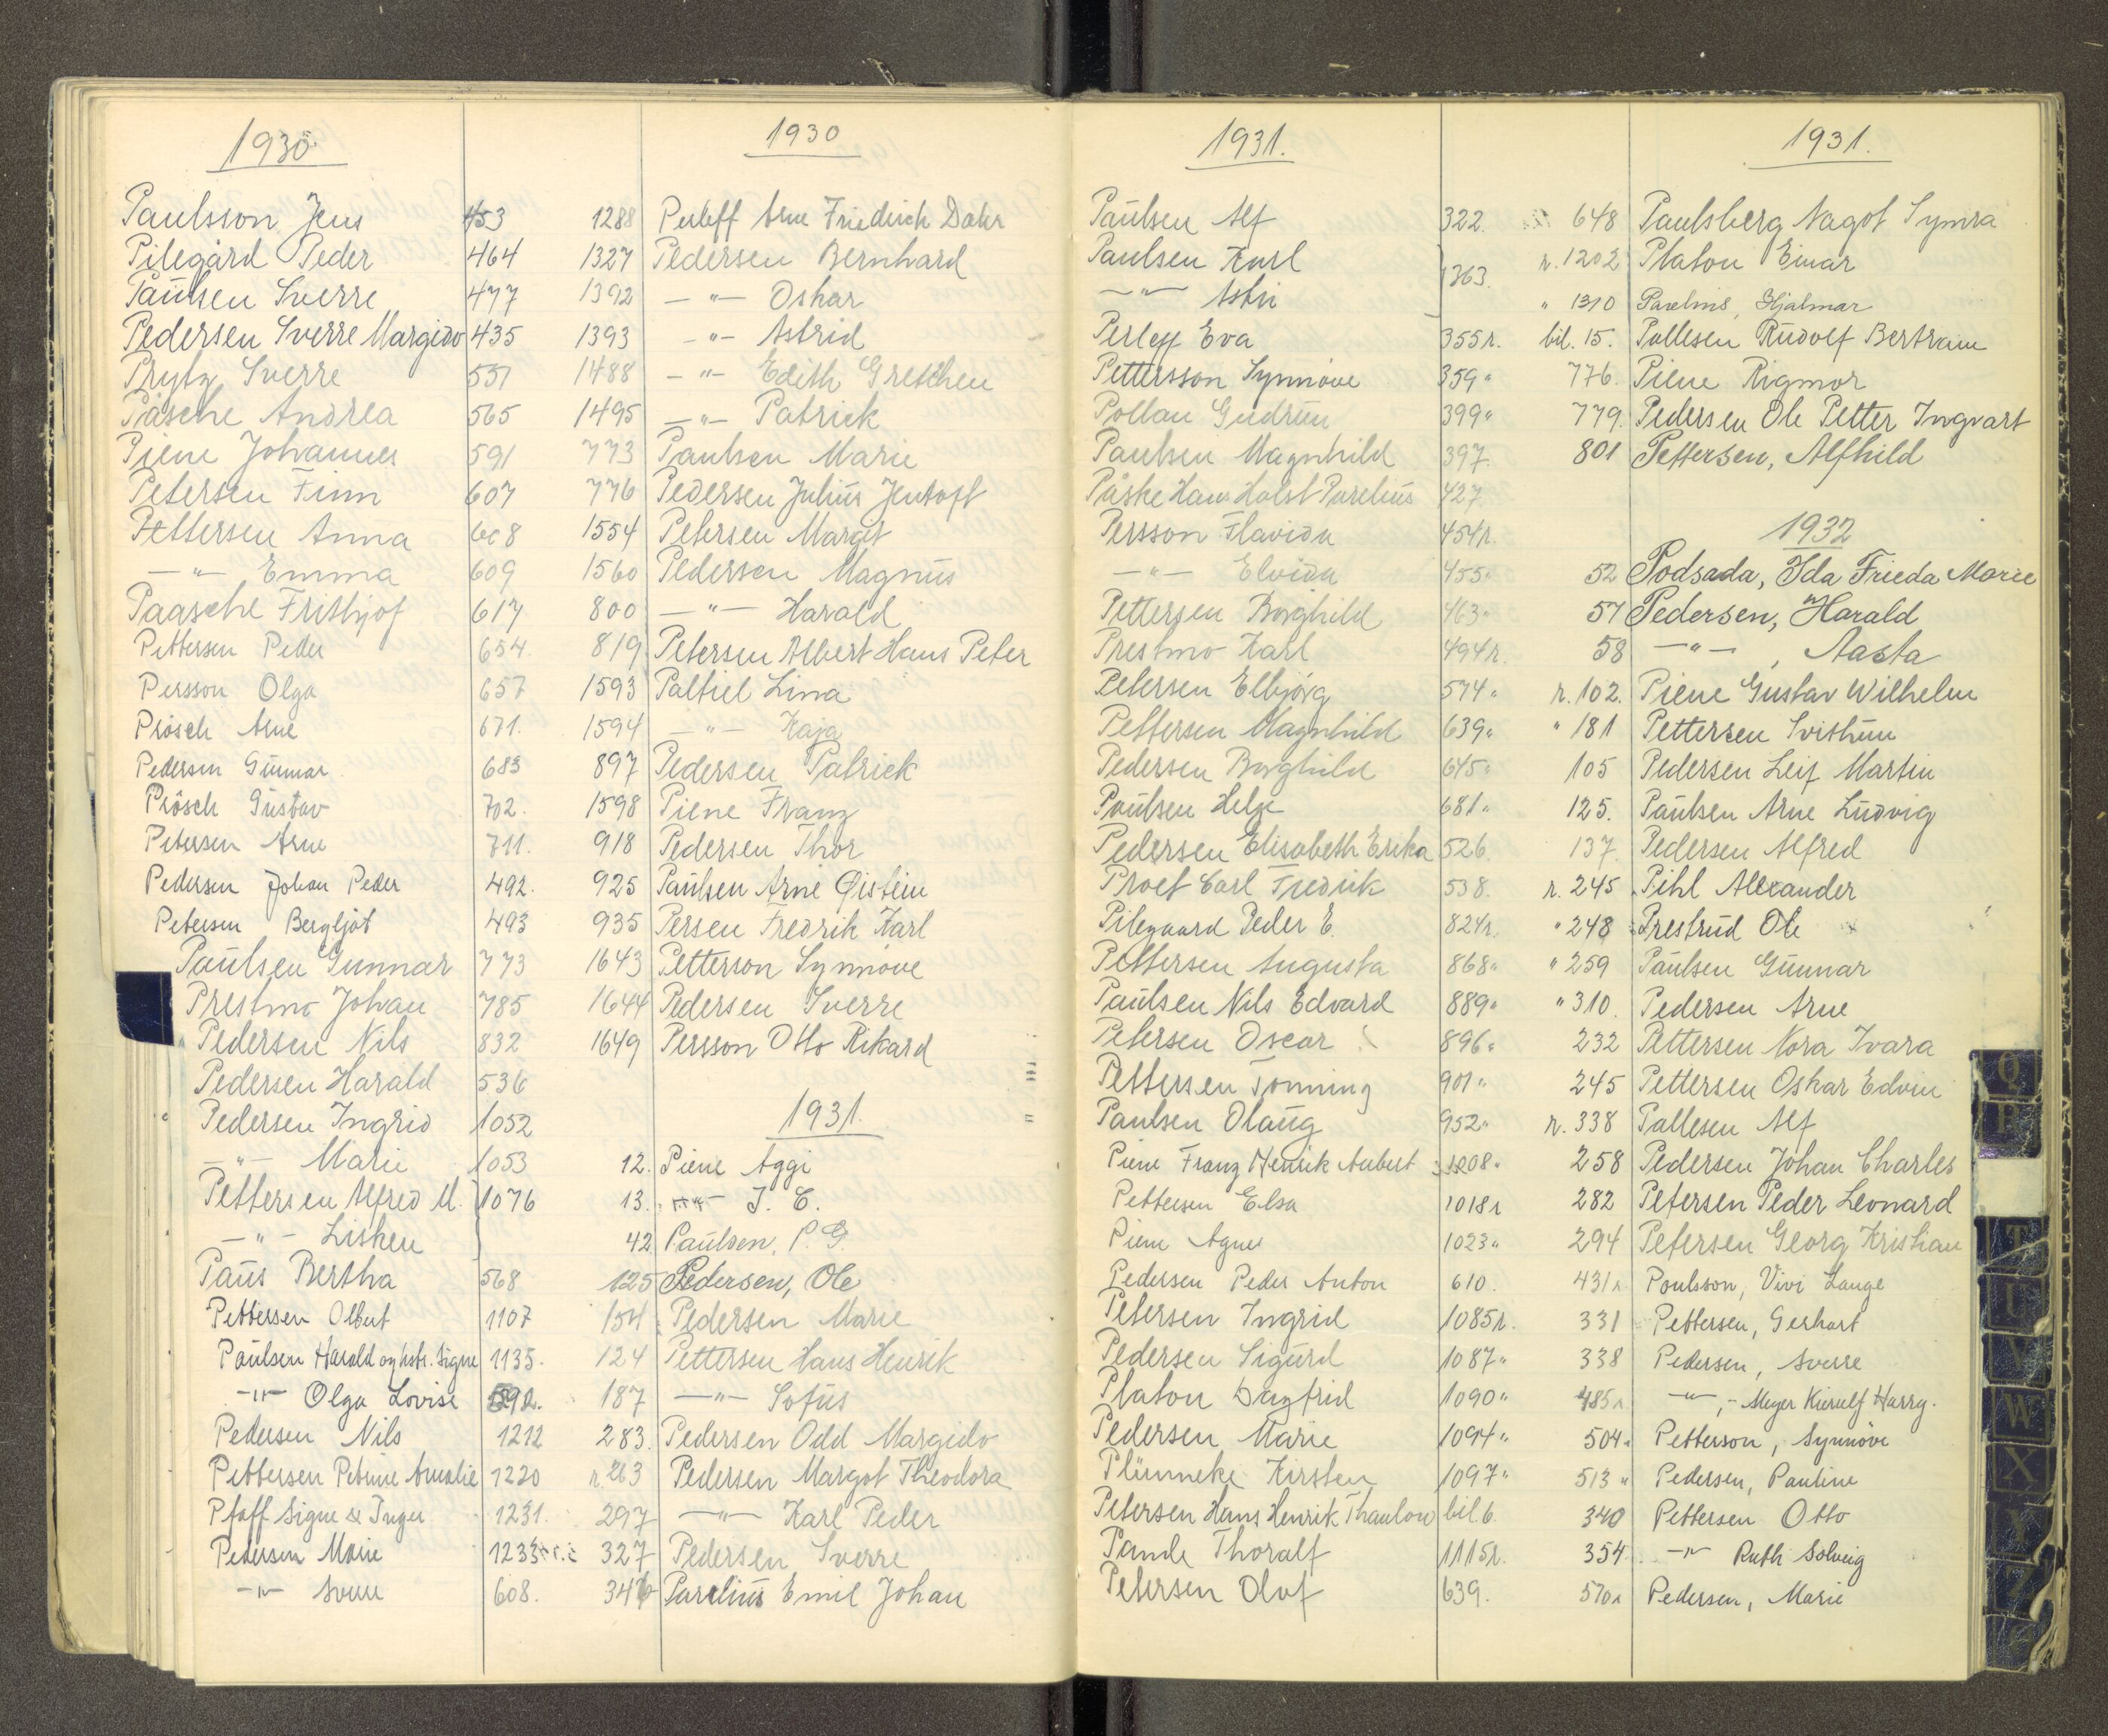 1930
Paulsson Jens 453
Pilegård Peder 464
Paulsen Sverre 477
Pedersen Sverre Margido 435
Prytz Sverre 531
Påsche Andrea 565
Piene Johannes 591
Petersen Finn 607
Pettersen Anna 608
—"— Emma 609
Paasche Frithjof 617
Pettersen Peder 654
Persson Olga 657
Prösch Arne 671.
Pedersen Gunnar 683
Prösch Gustav 702.
Petersen Arne 711.
Pedersen Johan Peder 492.
Petersen Bergljot 493
Paulsen Gunnar 773
Prestmo Johan 785
Pedersen Nils 832
Pedersen Harald 536
Pedersen Ingrid 1052
—"— Marie 1053
Pettersen Alfred M. 1076
—"— Lisken
Paus Bertha 568
Pettersen Olbert 1107
Paulsen Harald og hstr. Signe 1135.
—"— Olga Lovise 592.
Pedersen Nils 1212
Pettersen Petrine Amalie 1220
Pfaff Signe & Inger 1231.
Pedersen Marie 1233
—"— Sverre 608.
1930
1288 Perleff Arne Friedrich Dahr
1327 Pedersen Bernhard
1392 —"— Oskar
1393 —"— Astrid
1488 —"— Edith Gretchen
1495 —"— Patrick
773 Paulsen Marie
776 Pedersen Julius Jentoft
1554 Petersen Margit
1560 Pedersen Magnus
800 —"— Harald
819 Petersen Albert Hans Peter
1593 Paltiel Lina
1594 —"— Kaja
897 Pedersen Patrick
1598 Piene Franz
918 Pedersen Thor
925 Paulsen Arne Øistein
935 Persen Fredrik Karl
1643 Petterson Synnøve
1644 Pedersen Sverre
1649 Persson Otto Rikard
1931.
12. Piene Aggi
13. —"— J. C.
42 Paulsen, P. G.
125 Pedersen, Ole
154 Pedersen Marie
124 Pettersen Hans Henrik
187 —"— Sofus
283. Pedersen Odd Margido
r. 263 Pedersen Margot Theodora
297 —"— Karl Peder
327 Pedersen Sverre
346 Parelius Emil Johan
1931.
Paulsen Alf 322.
Paulsen Karl 1363.
—"— Astri
Perleff Eva 355 r.
Pettersson Synnøve 359 "
Pollau Gudrun 399 "
Paulsen Magnhild 397.
Påske Hans Holst Parelius 427
Persson Flavida 454 r.
—"— Elvida 455 "
Pettersen Borghild 463 "
Prestmo Karl 494 r.
Petersen Elbjørg 574 "
Pettersen Magnhild 639 "
Pedersen Borghild 645 "
Paulsen Helge 681 "
Pedersen Elisabeth Erika 526.
Proet Carl Fredrik 538.
Pilegaard Peder E. 824 r.
Pettersen Augusta 868 "
Paulsen Nils Edvard 889 "
Petersen Oscar 896 "
Pettersen Tønning 901 "
Paulsen Olaug 952 "
Piene Franz Henrik Aubert 1208 "
Pettersen Elsa 1018 r
Piene Agnes 1023 "
Pedersen Peder Anton 610.
Petersen Ingrid 1085 r.
Pedersen Sigurd 1087 "
Platou Dagfrid 1090 "
Pedersen Marie 1094 "
Plünneke Kirsten 1097 "
Petersen Hans Henrik Thaulow bil. 6.
Pande Thoralf 1115 r.
Petersen Olof 639.
1931.
648 Paulsberg Nagot Synra
r. 1202 Platou Einar
" 1310 Parelius, Hjalmar
bil. 15. Pallesen Rudolf Bertram
776. Piene Rigmor
779. Pedersen Ole Petter Ingvart
801 Pettersen, Alfhild
1932
52 Podsada, Ida Frieda Marie
57 Pedersen, Harald
58 —"—, Aasta
r. 102. Piene Gustav Wilhelm
" 181 Pettersen Svithun
105 Pedersen Leif Martin
125. Paulsen Arne Ludvig
137. Pedersen Alfred
r. 245 Pihl Alexander
" 248 Prestrud Ole
" 259 Paulsen Gunnar
" 310. Pedersen Arne
232 Pettersen Nora Ivara
245 Pettersen Oskar Edvin
r. 338 Pallesen Alf
258 Pedersen Johan Charles
282 Petersen Peder Leonard
294 Petersen Georg Kristian
431 r Poulsson, Vivi Lange
331 Pettersen, Gerhart
338 Pedersen, Sverre
485 r. —"—, Meyer Kierulf Harry.
504 " Petterson, Synnøve
513 " Pedersen, Pauline
340 Pettersen Otto
354. —"— Ruth Solveig
570 r Pedersen, Marie
Q
P
T
U
V
W
X
Y
Z